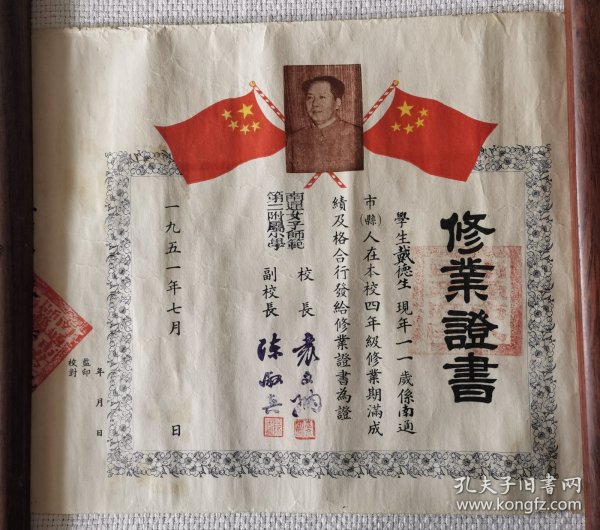 修業證書
學生戴德生現年一一歲係南通
市(縣)人在本校四年級修業期滿成
績及格合行發給修業證書為證
南通女子師範
第二附屬小學
校長
副校長 陳敏真
一九五一年七月 日
年 月 日
監印
校對
孔夫子旧书网
www.kongfz.com